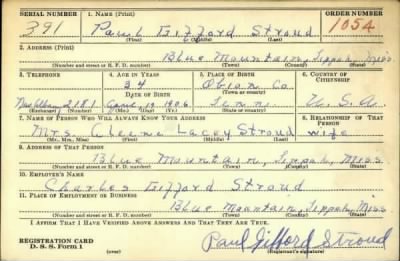 SERIAL NUMBER 1. NAME (Print) ORDER NUMBER
391 Paul Gifford Stroud 1054
(First) (Middle) (Last)
2. ADDRESS (Print)
Blue Mountain, Tippah, Miss
(Number and street or R. F. D. number) (Town) (County) (State)
3. TELEPHONE 4. AGE IN YEARS 5. PLACE OF BIRTH 6. COUNTRY OF CITIZENSHIP
34 Obion Co.
DATE OF BIRTH
New Albany 2181 June 19 1906 Tenn. U. S. A.
(Exchange) (Number) (Mo.) (Day) (Yr.) (State or country)
7. NAME OF PERSON WHO WILL ALWAYS KNOW YOUR ADDRESS 8. RELATIONSHIP OF THAT PERSON
Mrs. Lacey Stroud wife
(Mr., Mrs., Miss) (First) (Middle) (Last)
9. ADDRESS OF THAT PERSON
Blue Mountain, Tippah, Miss
(Number and street or R. F. D. number) (Town) (County) (State)
10. EMPLOYER'S NAME
Charles Gifford Stroud
11. PLACE OF EMPLOYMENT OR BUSINESS
Blue Mountain, Tippah, Miss
(Number and street or R. F. D. number) (Town) (County) (State)
I AFFIRM THAT I HAVE VERIFIED ABOVE ANSWERS AND THAT THEY ARE TRUE.
REGISTRATION CARD
D. S. S. FORM 1 (over) Paul Gifford Stroud
(Registrant's signature)